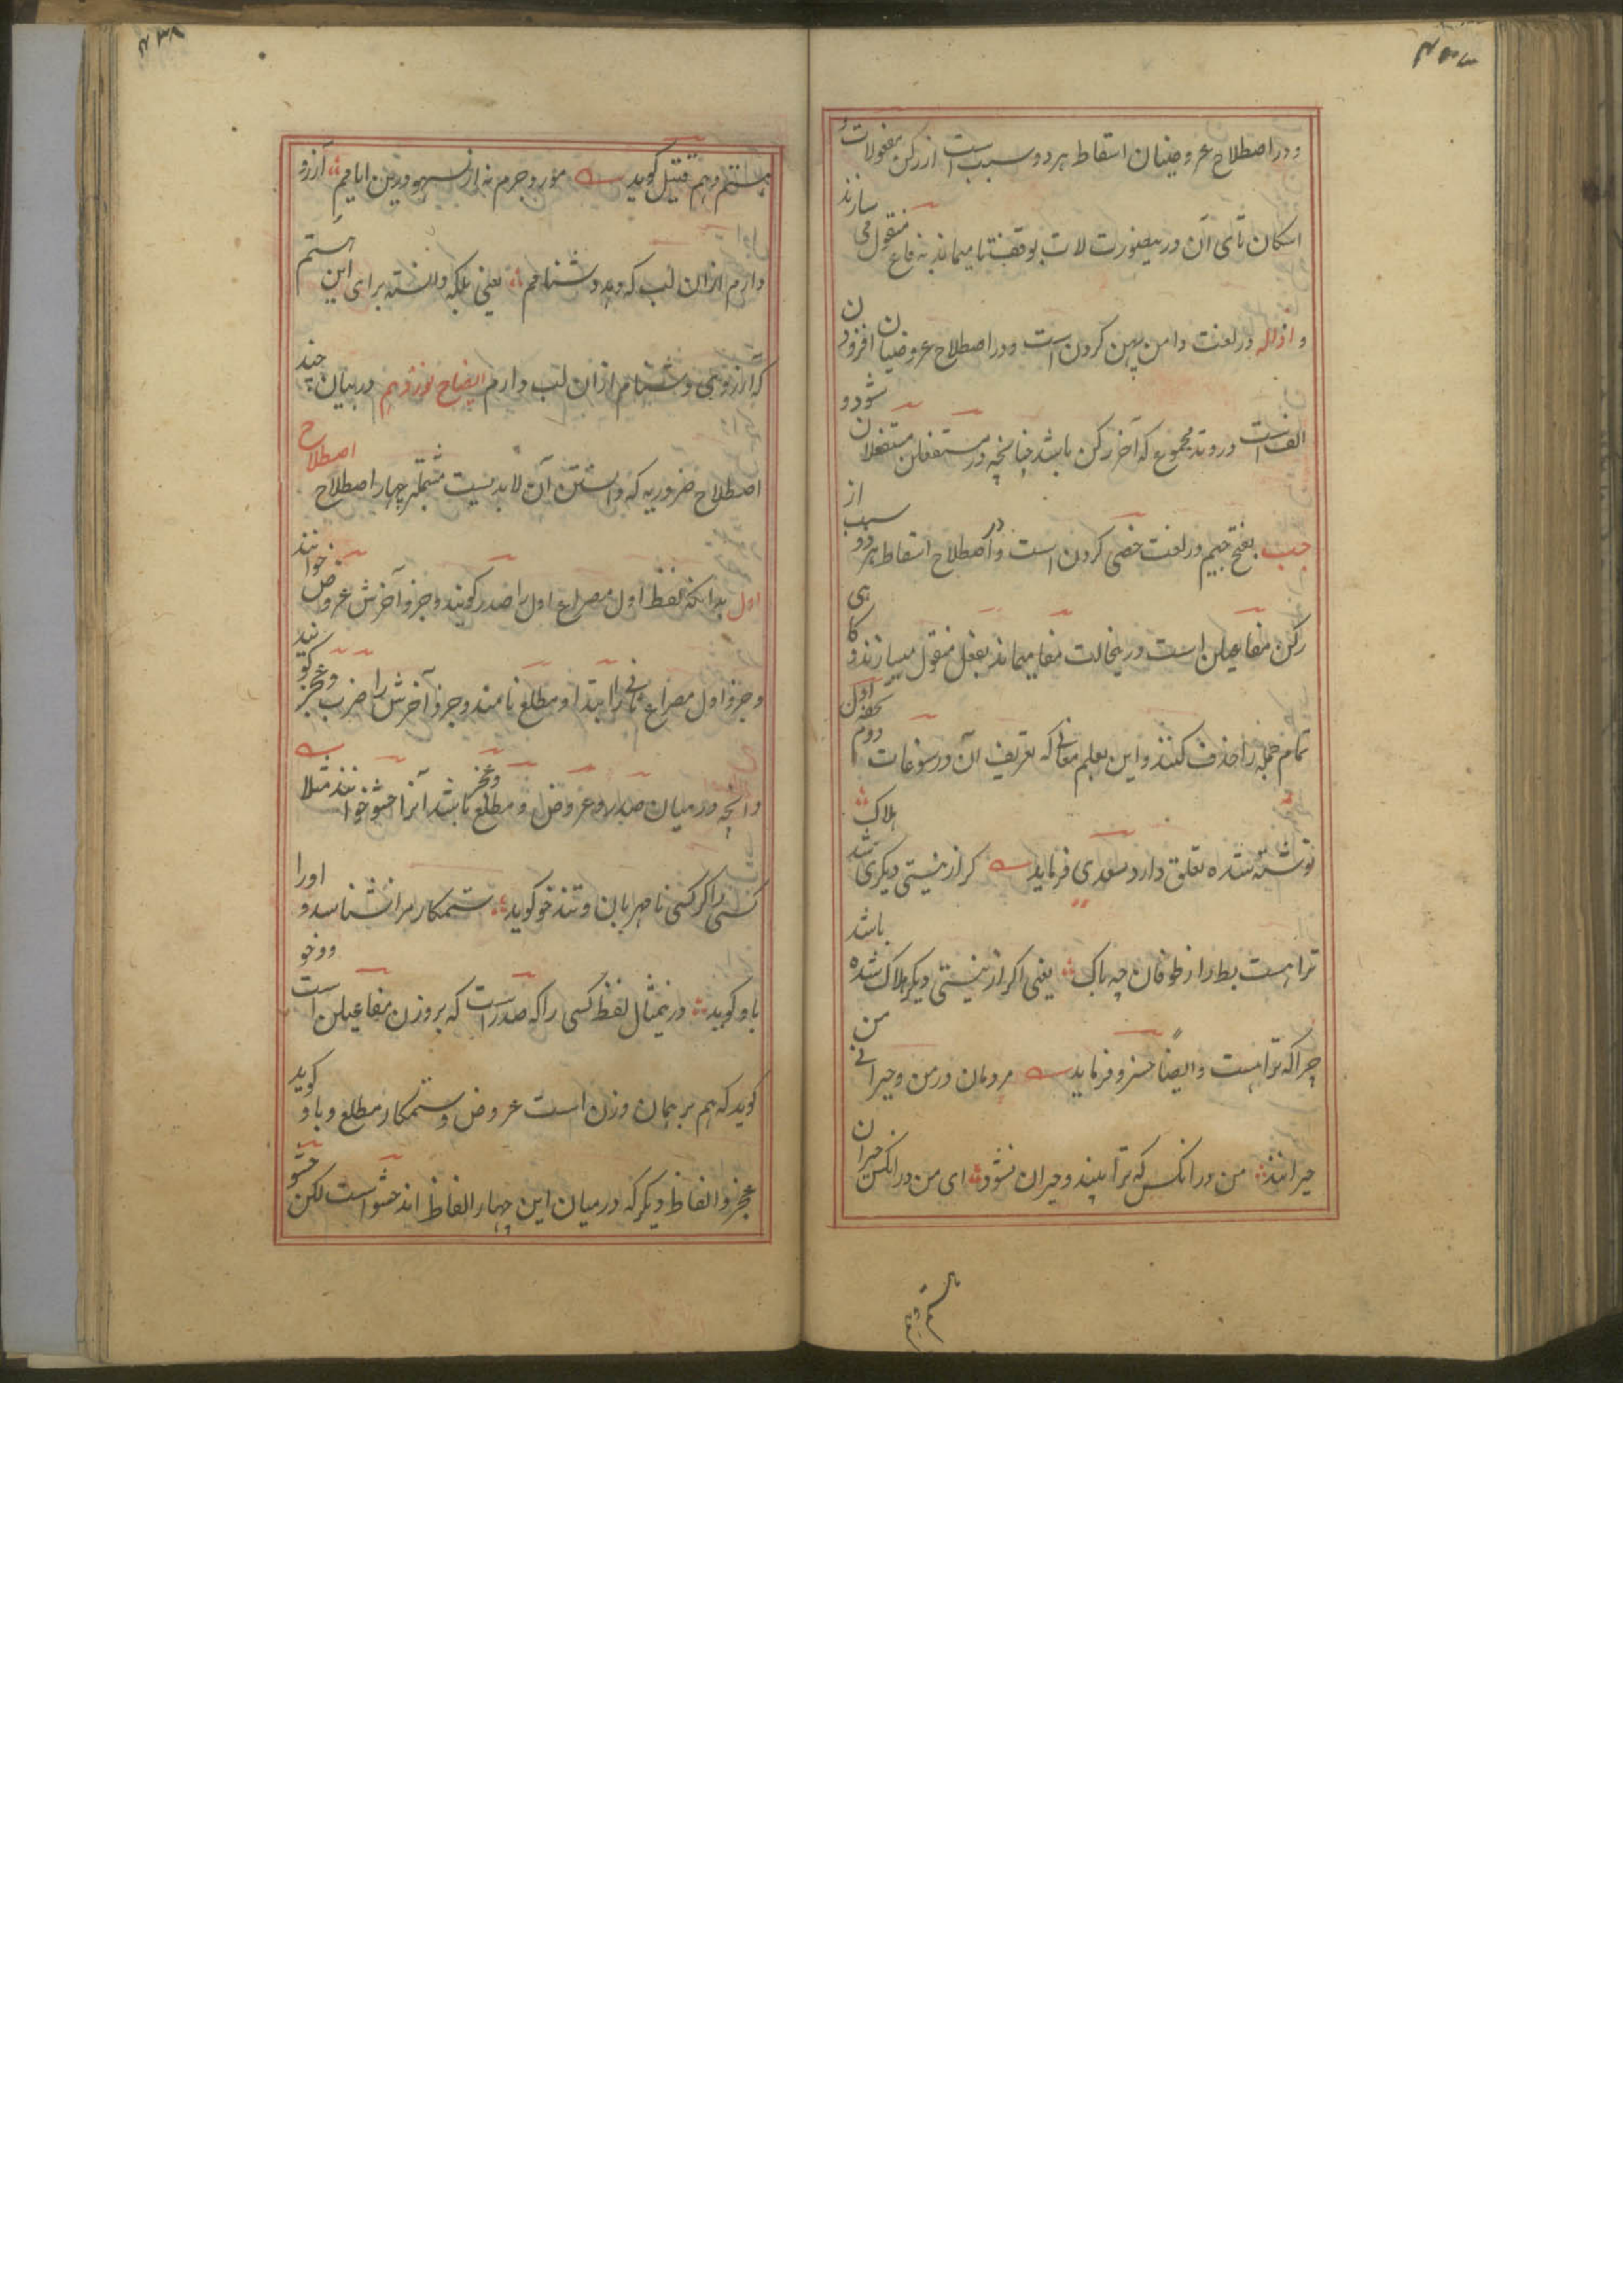 و در اصطلاح عروضیان اسقاط هر دو سبب است از رکن مفعولات
اسکان تای آن درینصورت لات بوقف تا میماند به فاع منقول می سازند
و اذاله در لغت دامن پهن کردن است و در اصطلاح عروضیان افزودن
الف است در وتد مجموع که آخر رکن باشد چنانچه در مستفعلن مستفعلان شود و
جب بفتح جیم در لغت خصی کردن است و در اصطلاح اسقاط هر دو سبب از
رکن مفاعیلن است درینحالت مفا میماند بفعل منقول میسازند و کاهی
تمام جمله را حذف کنند و این بعلم معانی که تعریف آن در سوغات دوم تحفه اول
نوشته شده تعلق دارد سعدی فرماید کر از نیستی دیکری شد هلاک
ترا هست بط را ز طوفان چه باک یعنی اکر از نیستی دیکر هلاک شده باشد
چرا که ترا هست و ایضاً خسرو فرماید مردمان در من و حیرانی من
حیرانند من در انکس که ترا بیند و حیران نشود ای من در انکس حیران
هستم و هم قتیل کوید آرزو
دارم ازان لب که دهد دشنامم یعنی بلکه دانسته برای این هستم
که آرزوی دشنام ازان لب دارم ایضاح نوزدهم در بیان چند
اصطلاح ضروریه که دانستن آن لابدیست مشتملبر چهار اصطلاح اصطلاح
اول بدانکه لفظ اول مصراع اول را صدر کویند و جزو آخرش عروض خوانند
و جزو اول مصراع ثانی را ابتدا و مطلع نامند و جزو آخرش را ضرب و عجز کویند
و آنچه در میان صدر و عروض و مطلع و عجز باشد آنرا حشو خوانند مثلا
کسی را کر کسی نامهربان و تندخو کوید ستمکار مرا نشناسد و او را
باو کوید درینمثال لفظ کسی را که صدر است که بر وزن مفاعیلن است
کوید که هم بر همان وزن است عروض و ستمکار مطلع و باو کوید
عجز و الفاظ دیکر که در میان این چهار الفاظ اند حشو است لکن حشو